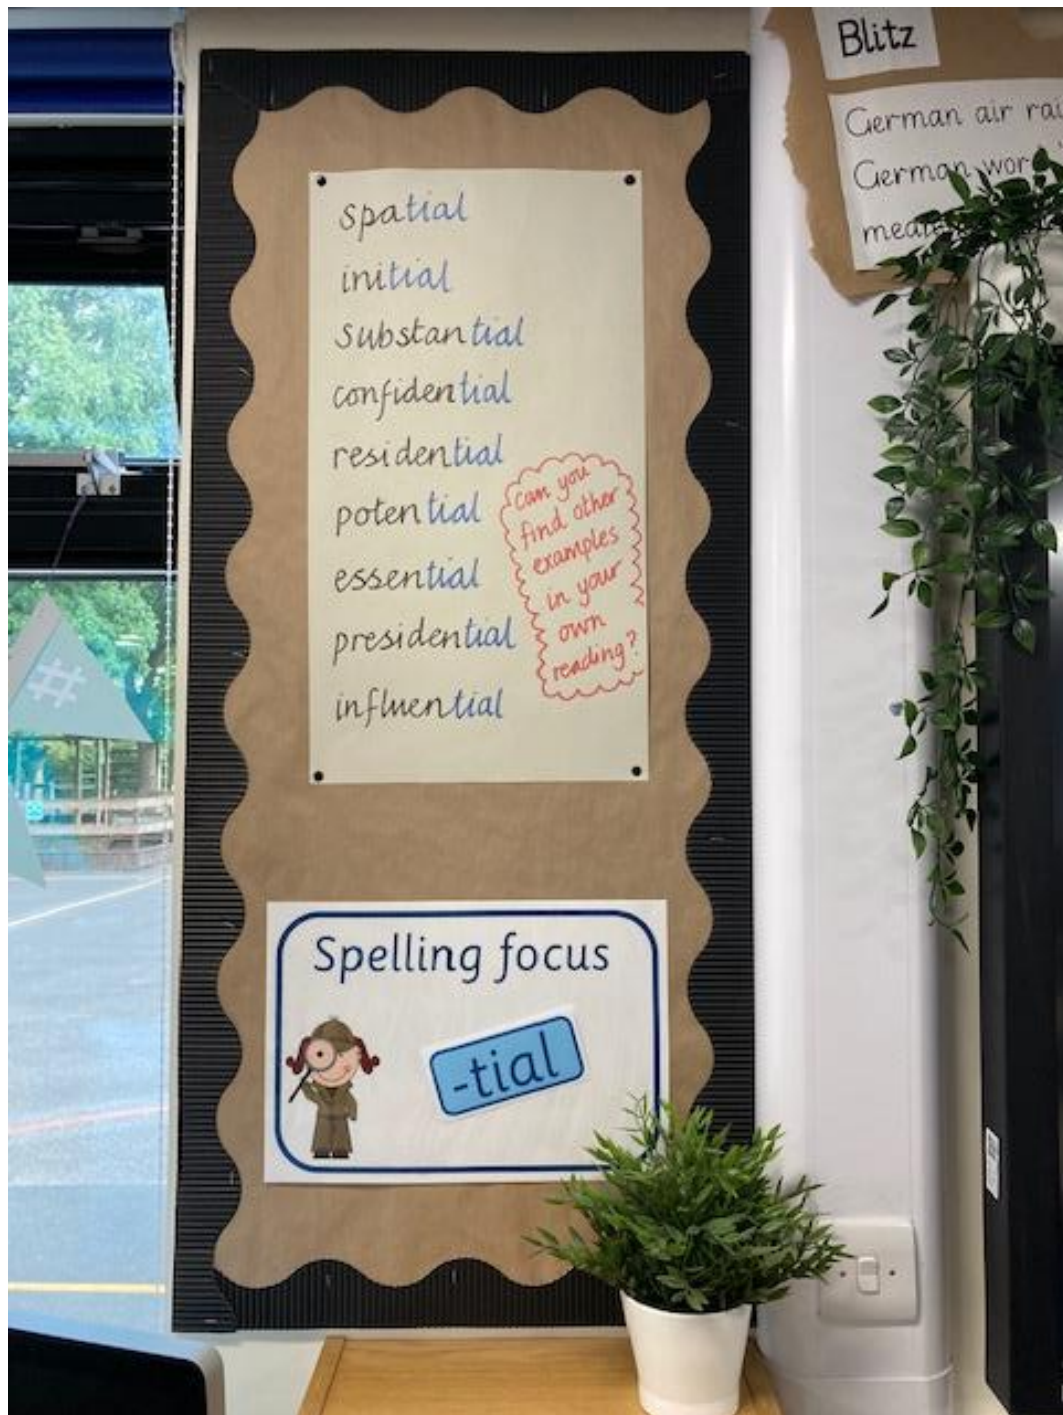 spatial
initial
substantial
confidential
residential
potential
essential
presidential
influential
can you
find other
examples
in your
own
reading?
Spelling focus
-tial
Blitz
German air
German
#